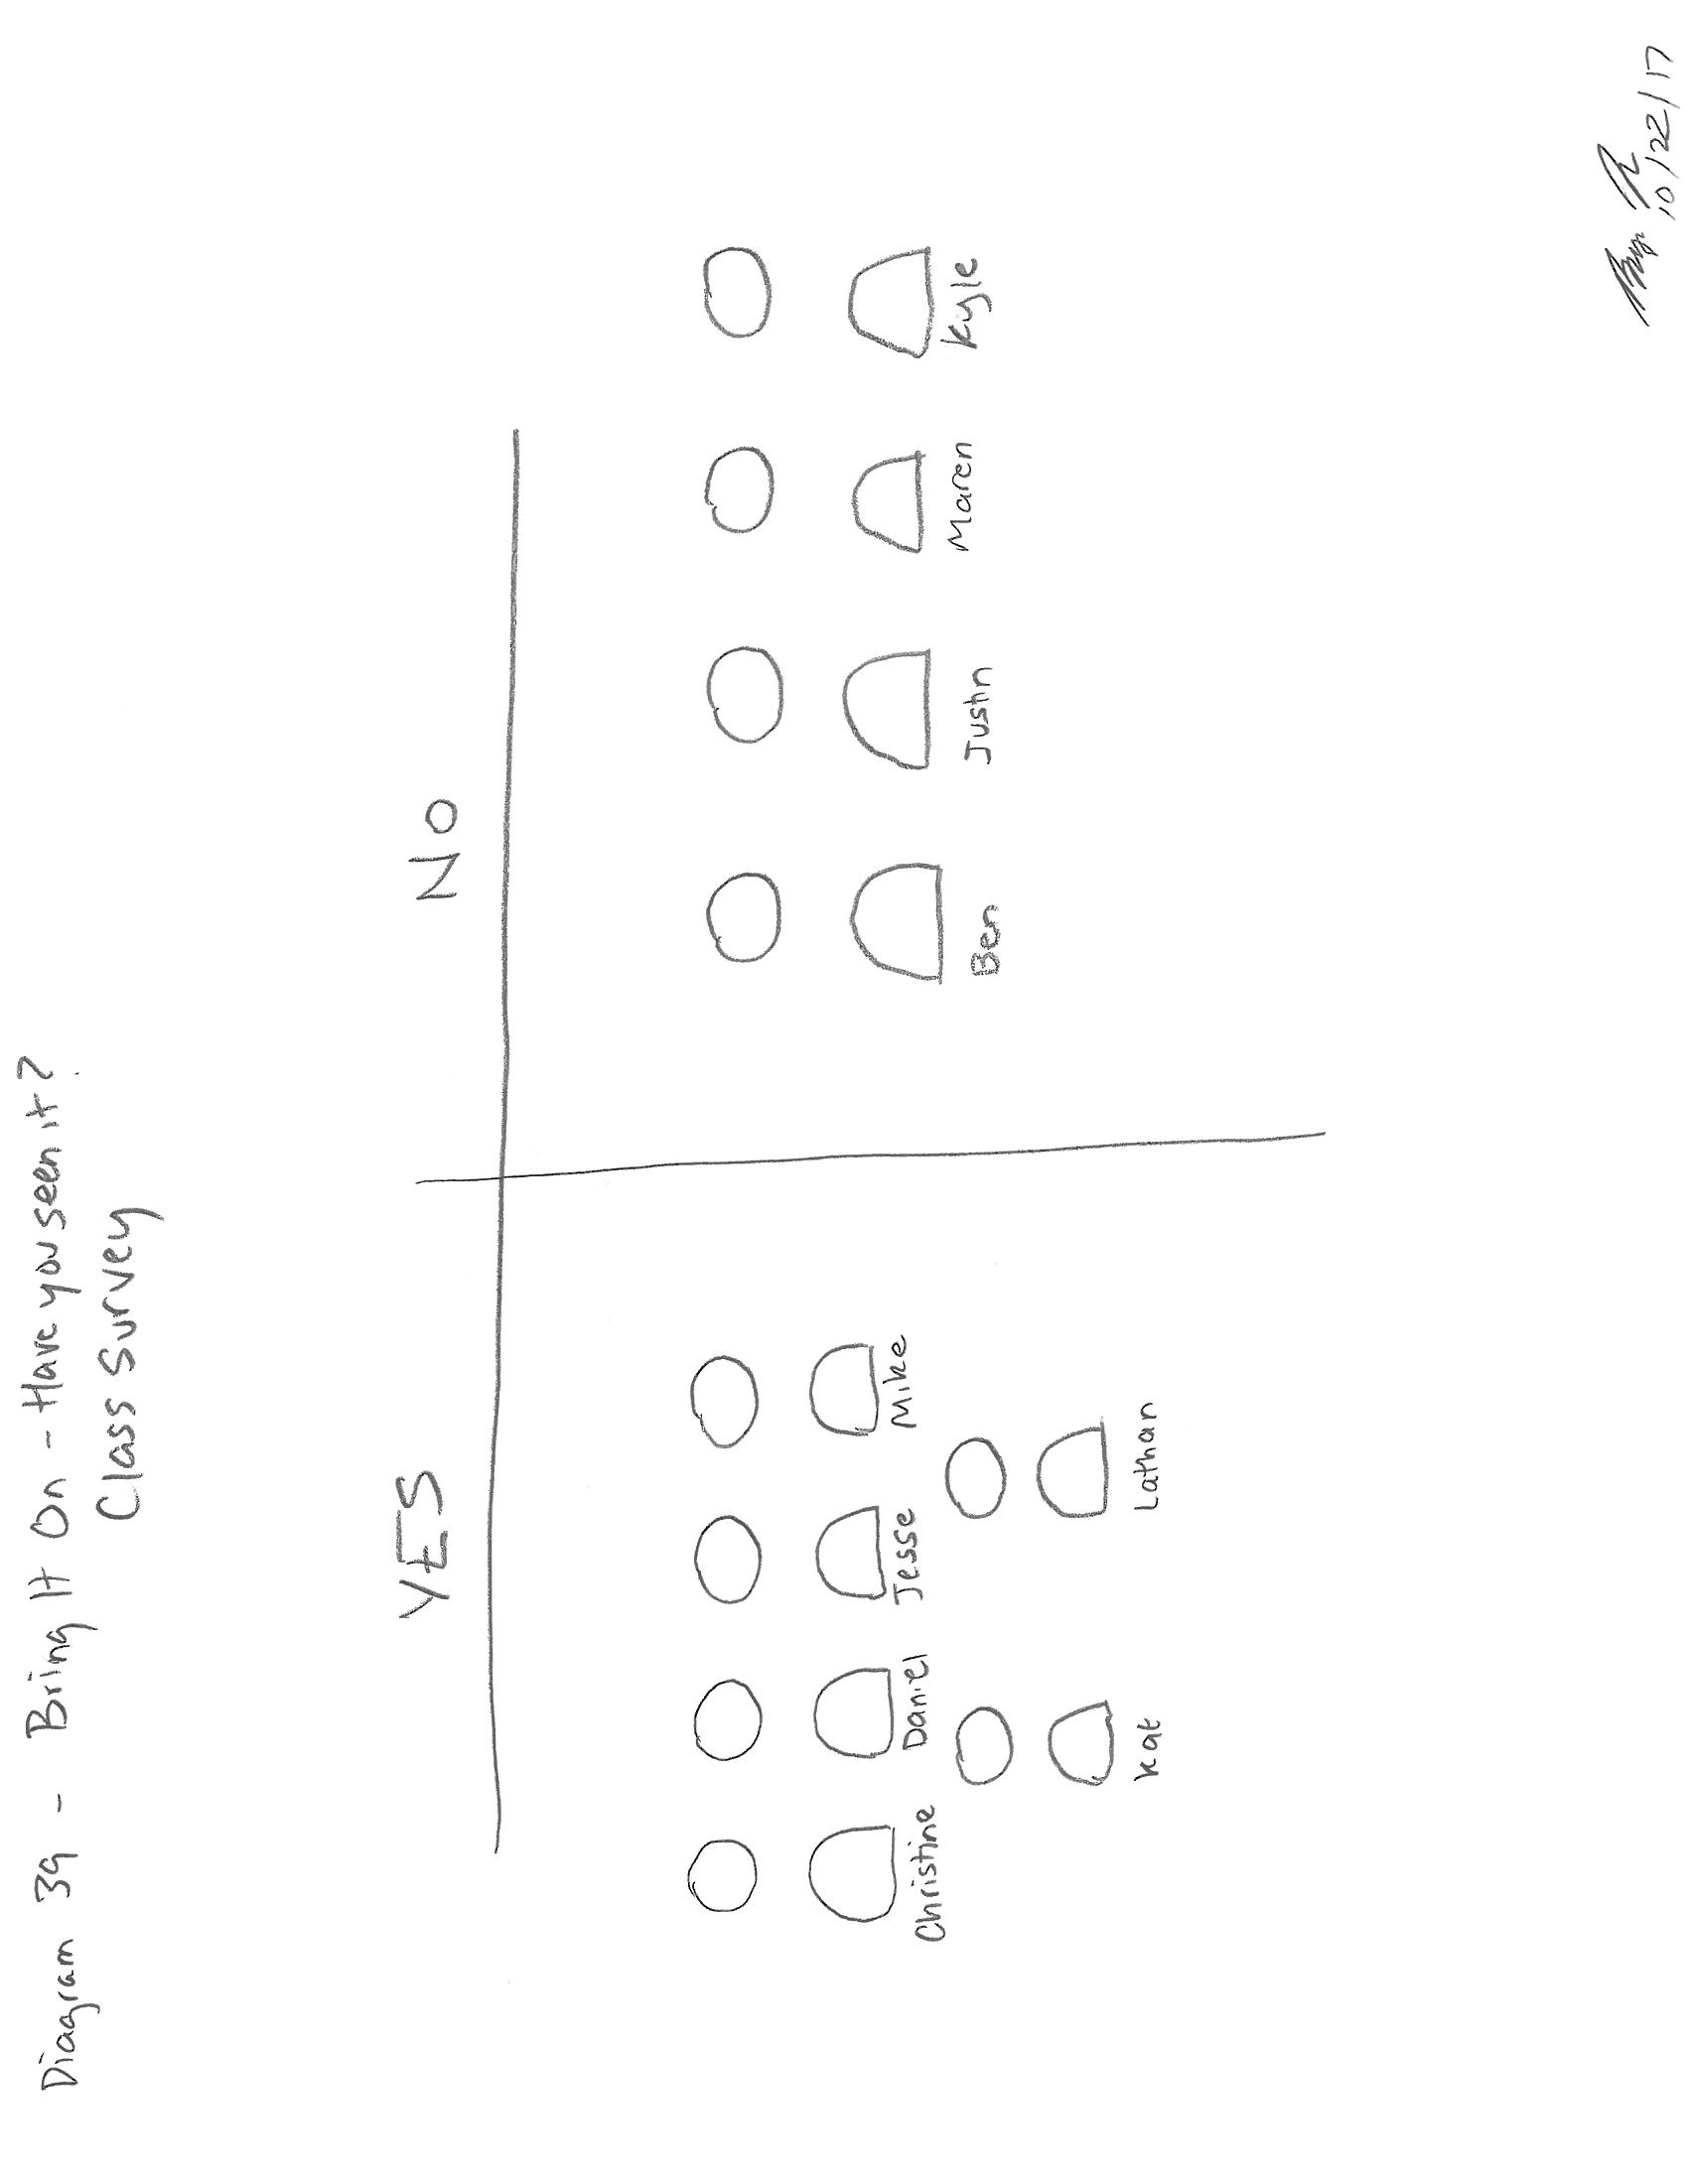 Diagram 39 - Bring It On - Have you seen it?
Class Survey
YES
NO
Christine
Daniel
Jesse
Mike
Kat
Lathan
Ben
Justin
Maren
Kyle
10/22/17